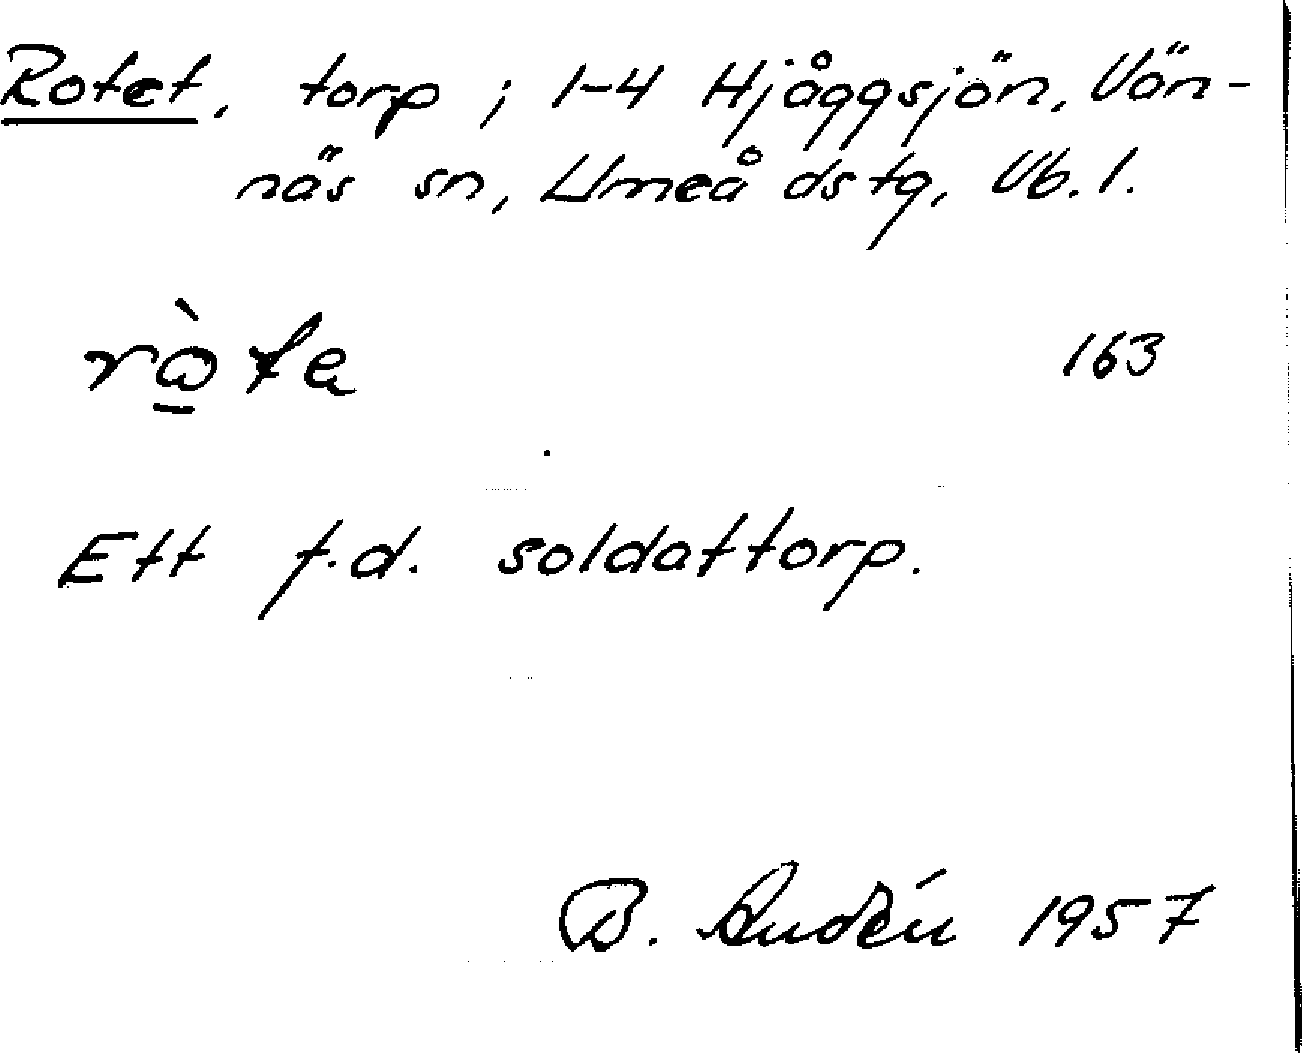 Rotet, torp ; 1-4 Hjåggsjön, Vän-
näs sn, Umeå dstg, Vb. l.
163
Ett f.d. soldattorp.
B. 1957